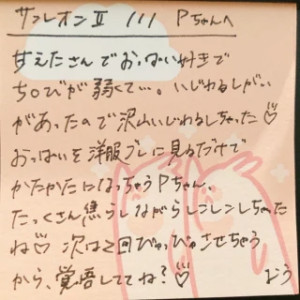 サンレオンⅡ /// Pちゃんへ
甘えたさんでおっぱい好きで
ち○びが弱くて…。いじわるしがい
があったので沢山いじわるしちゃった♡
おっぱいを洋服ごしに見るだけで
かたかたになっちゃうPちゃん、
たっくさん焦らしながら しちゃった
ね♡ 次は2回ぴゅっぴゅさせちゃう
から、覚悟しててね?♡